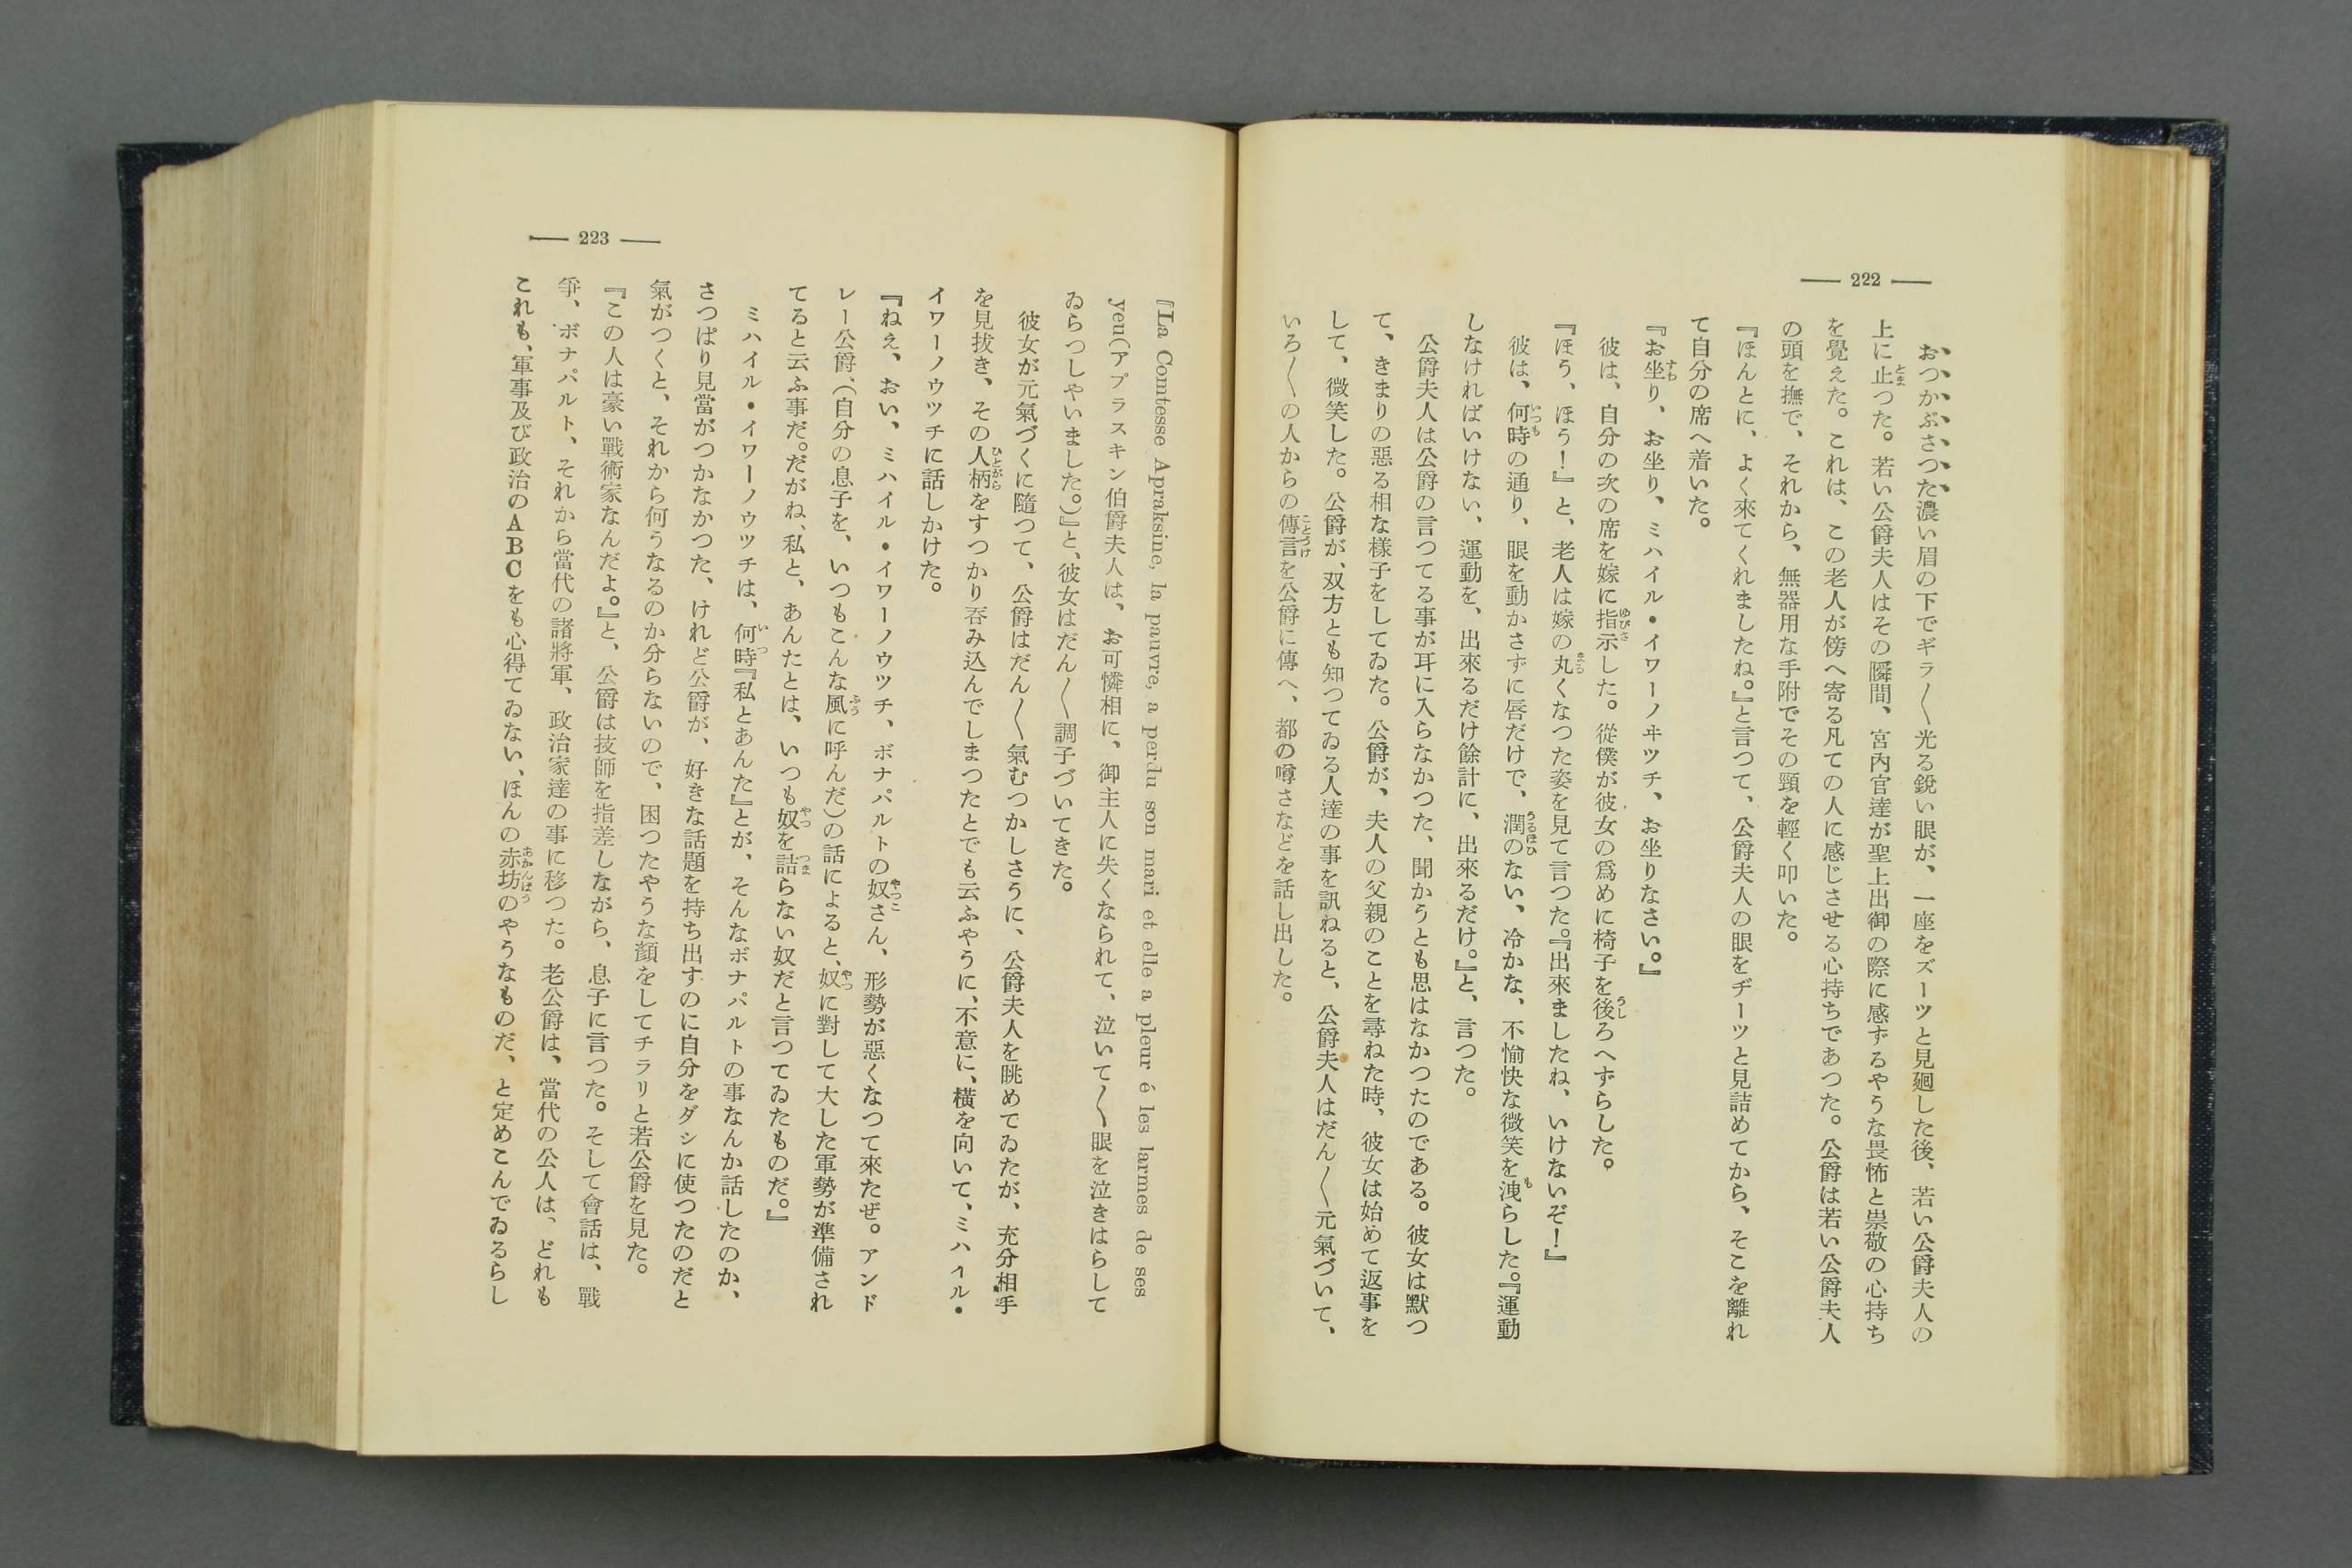 — 222 —
おつかぶさつた濃い眉の下でギラ〱光る鋭い眼が、一座をズーツと見廻した後、若い公爵夫人の
上に止つた。若い公爵夫人はその瞬間、宮內官達が聖上出御の際に感ずるやうな畏怖と崇敬の心持ち
を覺えた。これは、この老人が傍へ寄る凡ての人に感じさせる心持ちであつた。公爵は若い公爵夫人
の頭を撫で、それから、無器用な手附でその頸を輕く叩いた。
『ほんとに、よく來てくれましたね。』と言つて、公爵夫人の眼をヂーツと見詰めてから、そこを離れ
て自分の席へ着いた。
『お坐り、お坐り、ミハイル・イワーノヰツチ、お坐りなさい。』
彼は、自分の次の席を嫁に指示した。從僕が彼女の爲めに椅子を後ろへずらした。
『ほう、ほう！』と、老人は嫁の丸くなつた姿を見て言つた。『出來ましたね、いけないぞ！』
彼は、何時の通り、眼を動かさずに唇だけで、潤のない、冷かな、不愉快な微笑を洩らした。『運動
しなければいけない、運動を、出來るだけ餘計に、出來るだけ。』と、言つた。
公爵夫人は公爵の言つてる事が耳に入らなかつた、聞かうとも思はなかつたのである。彼女は默つ
て、きまりの惡る相な樣子をしてゐた。公爵が、夫人の父親のことを尋ねた時、彼女は始めて返事を
して、微笑した。公爵が、双方とも知つてゐる人達の事を訊ねると、公爵夫人はだん〱元氣づいて、
いろ〱の人からの傳言を公爵に傳へ、都の噂さなどを話し出した。
— 223 —
『La Comtesse Apraksine, la pauvre, a perdu son mari et elle a pleur é les larmes de ses
yeu(アプラスキン伯爵夫人は、お可憐相に、御主人に失くなられて、泣いて〱眼を泣きはらして
ゐらつしやいました。)』と、彼女はだん〱調子づいてきた。
彼女が元氣づくに隨つて、公爵はだん〱氣むつかしさうに、公爵夫人を眺めてゐたが、充分相手
を見拔き、その人柄をすつかり呑み込んでしまつたとでも云ふやうに、不意に、横を向いて、ミハイル・
イワーノウツチに話しかけた。
『ねえ、おい、ミハイル・イワーノウツチ、ボナパルトの奴さん、形勢が惡くなつて來たぜ。アンド
レー公爵、(自分の息子を、いつもこんな風に呼んだ)の話によると、奴に對して大した軍勢が準備され
てると云ふ事だ。だがね、私と、あんたとは、いつも奴を詰らない奴だと言つてゐたものだ。』
ミハイル・イワーノウツチは、何時『私とあんた』とが、そんなボナパルトの事なんか話したのか、
さつぱり見當がつかなかつた、けれど公爵が、好きな話題を持ち出すのに自分をダシに使つたのだと
氣がつくと、それから何うなるのか分らないので、困つたやうな顏をしてチラリと若公爵を見た。
『この人は豪い戰術家なんだよ。』と、公爵は技師を指差しながら、息子に言つた。そして會話は、戰
爭、ボナパルト、それから當代の諸將軍、政治家達の事に移つた。老公爵は、當代の公人は、どれも
これも、軍事及び政治のABCをも心得てゐない、ほんの赤坊のやうなものだ、と定めこんでゐるらし